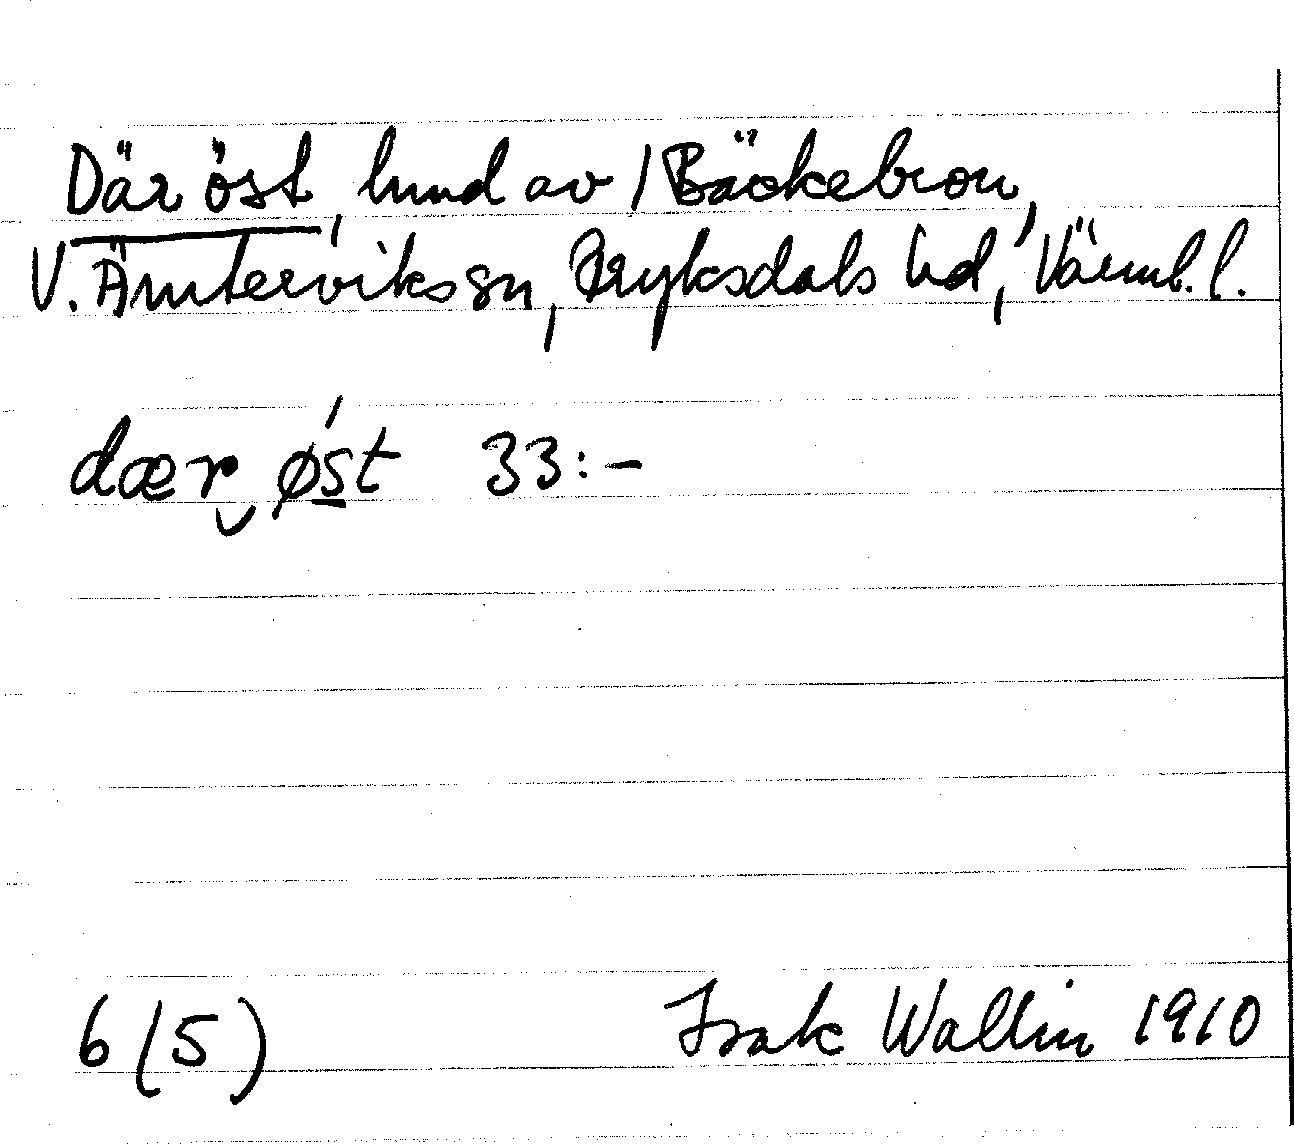 Där öst, hmd av 1 Bäckebron,
V. Ämterviks sn, Fryksdals hd, Värml. l.
dær‿øst 33:-
6 (5) Isak Wallin 1910